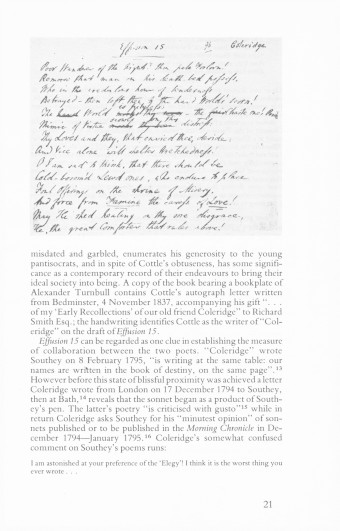 Effusion 15 Coleridge
Poor Wand'rer of the Night! thou pale Forlorn!
Remorse that man in his death-bed possess,
Who in the credulous hour of tenderness
Betrayed - then left thee to the hard World's scorn!
The World
Mimic of Virtue
Thy Loves and they, that envied thee, deride,
And Vice alone will shelter Wretchedness!
O I am sad to think, that there should be
Cold-bosom'd Lewd ones, who endure to place
Foul Offerings on the shrine of Misery,
And force from Famine the caress of Love!
May He shed healing on thy sore disgrace,
He, the great Comforter that rules above!
misdated and garbled, enumerates his generosity to the young
pantisocrats, and in spite of Cottle's obtuseness, has some signifi-
cance as a contemporary record of their endeavours to bring their
ideal society into being. A copy of the book bearing a bookplate of
Alexander Turnbull contains Cottle's autograph letter written
from Bedminster, 4 November 1837, accompanying his gift ". . .
of my 'Early Recollections' of our old friend Coleridge" to Richard
Smith Esq.; the handwriting identifies Cottle as the writer of "Col-
eridge" on the draft of Effusion 15.
Effusion 15 can be regarded as one clue in establishing the measure
of collaboration between the two poets. "Coleridge" wrote
Southey on 8 February 1795, "is writing at the same table: our
names are written in the book of destiny, on the same page".¹³
However before this state of blissful proximity was achieved a letter
Coleridge wrote from London on 17 December 1794 to Southey,
then at Bath,¹⁴ reveals that the sonnet began as a product of South-
ey's pen. The latter's poetry "is criticised with gusto"¹⁵ while in
return Coleridge asks Southey for his "minutest opinion" of son-
nets published or to be published in the Morning Chronicle in De-
cember 1794—January 1795.¹⁶ Coleridge's somewhat confused
comment on Southey's poems runs:
I am astonished at your preference of the 'Elegy'! I think it is the worst thing you
ever wrote . . .
21